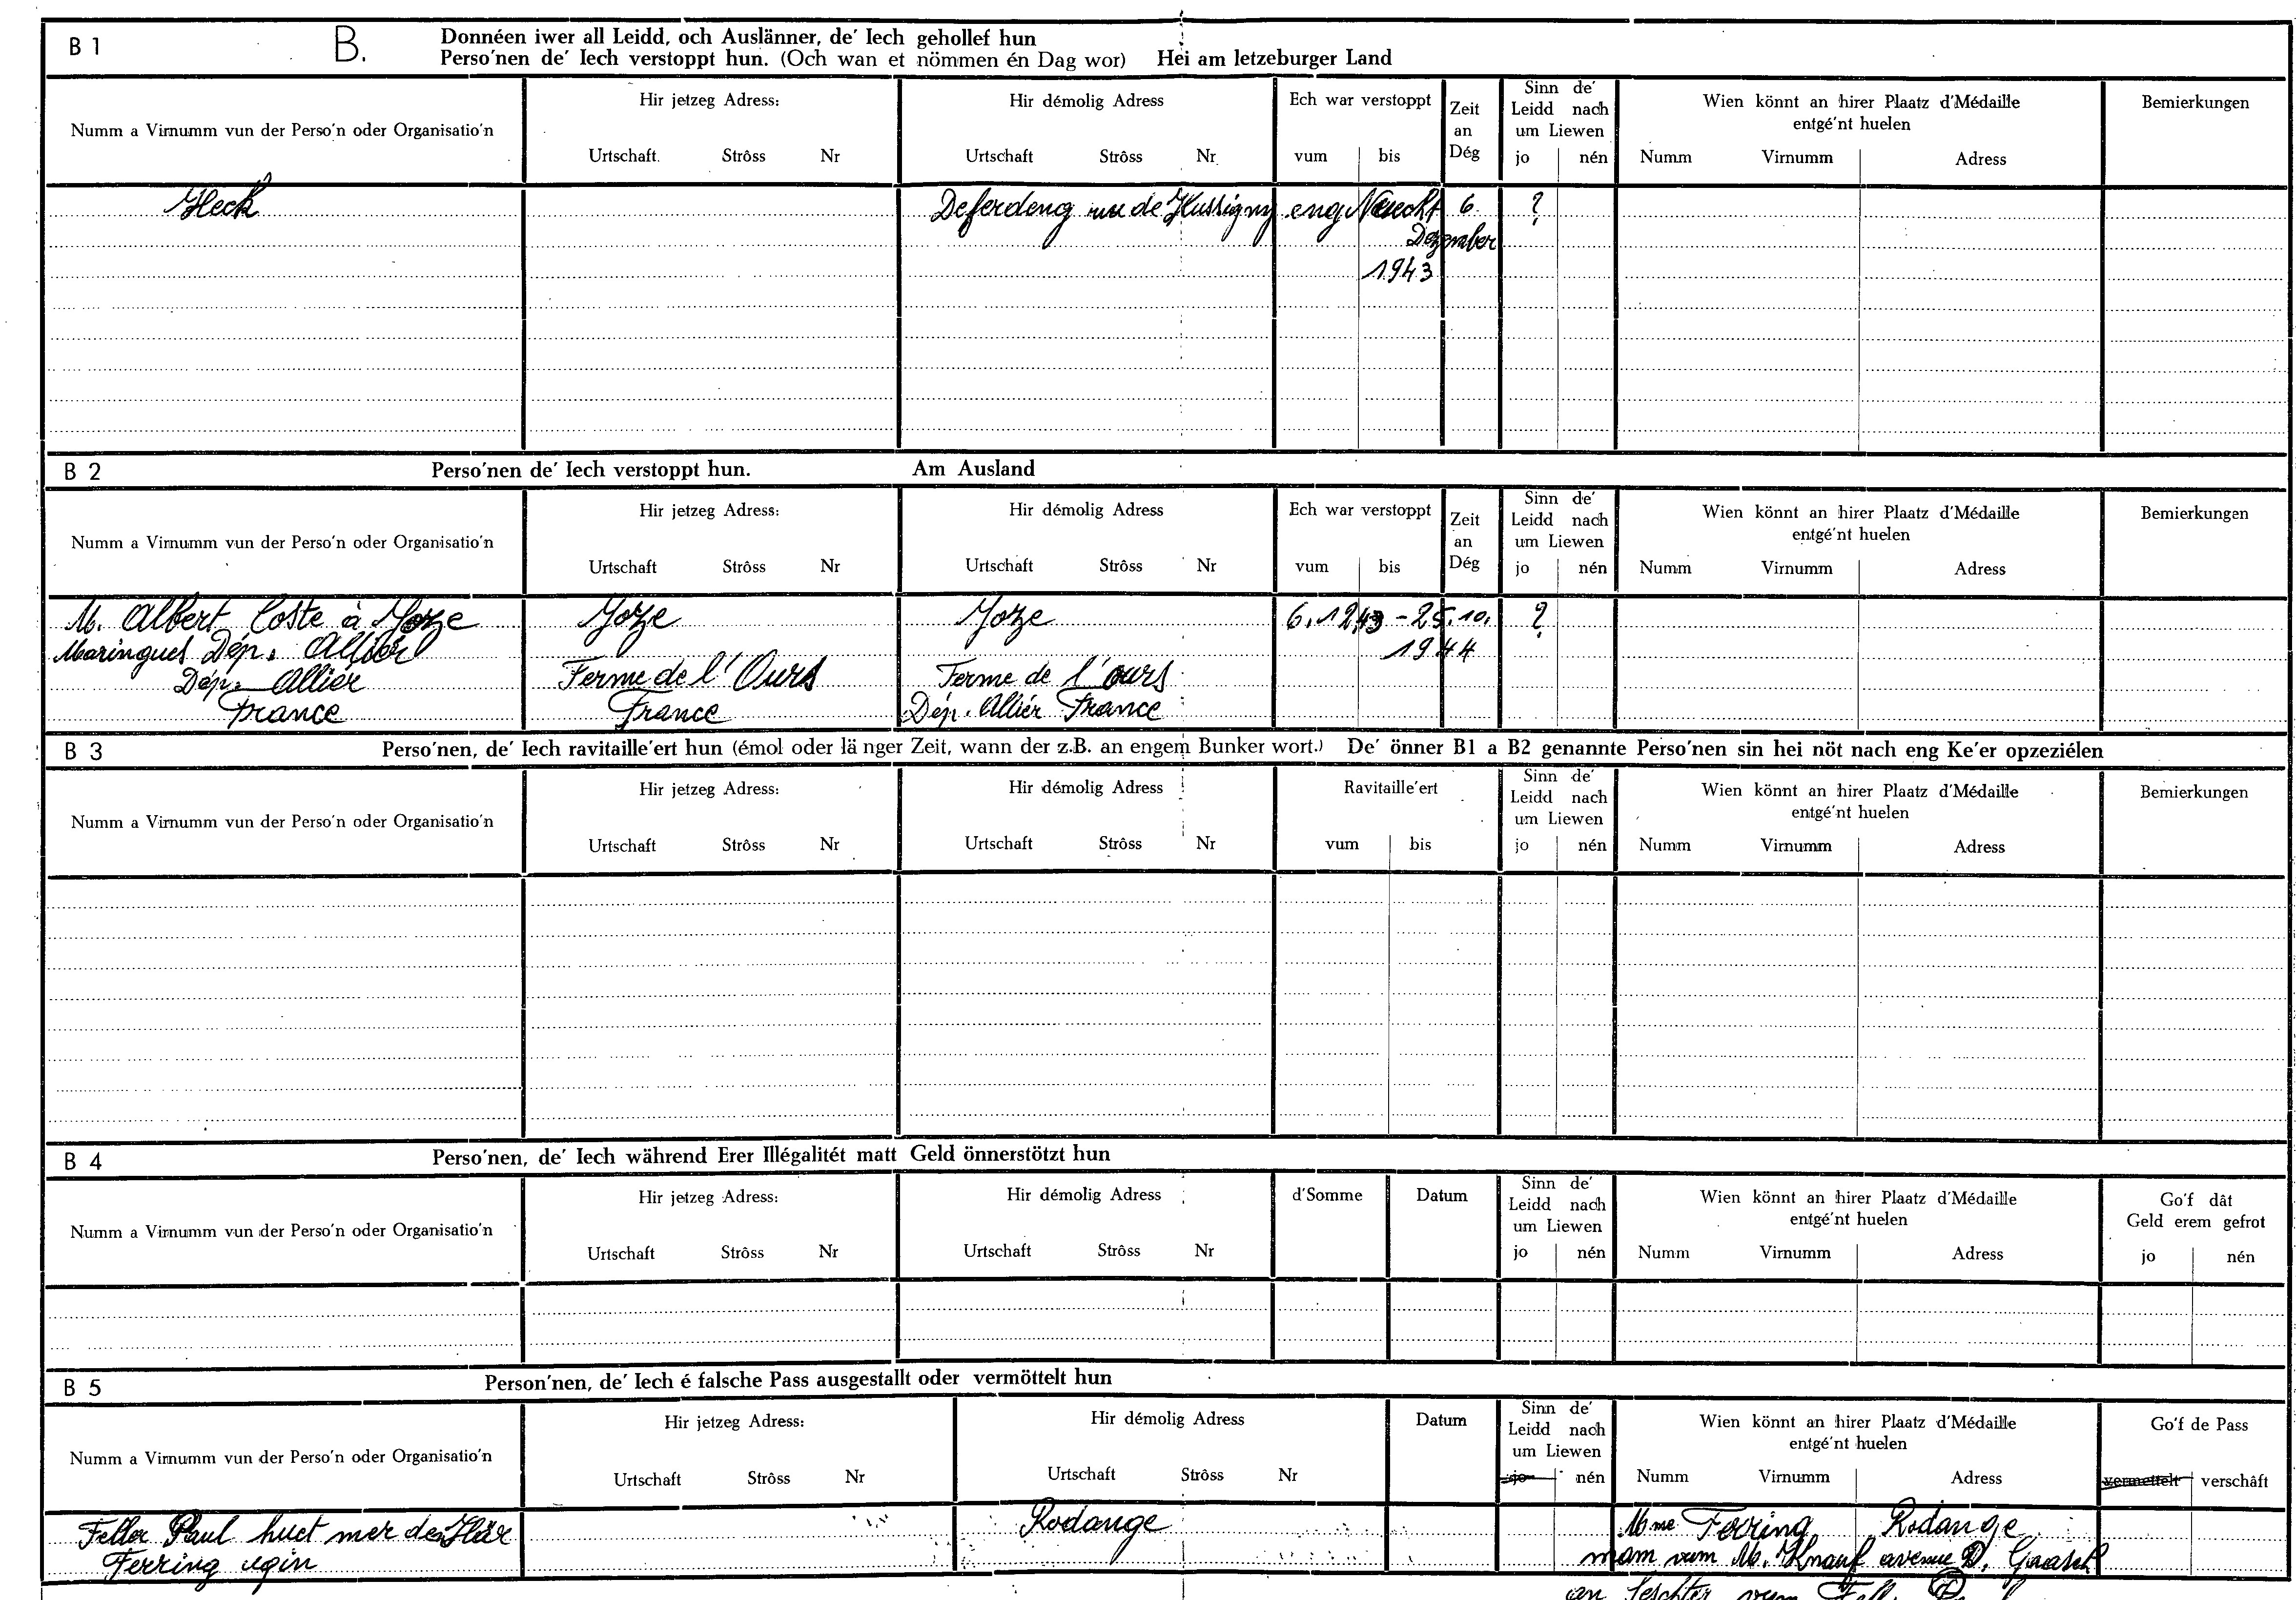 B 1 B. Donnéen iwer all Leidd, och Auslänner, de' Iech gehollef hun
Perso'nen de' Iech verstoppt hun. (Och wan et nömmen én Dag wor) Hei am letzeburger Land
Numm a Virnumm vun der Perso'n oder Organisatio'n
Hir jetzeg Adress:
Urtschaft Strôss Nr
Hir démolig Adress
Urtschaft Strôss Nr
Ech war verstoppt
vum bis
Zeit
an
Dég
Sinn de'
Leidd nach
um Liewen
jo nén
Wien könnt an hirer Plaatz d'Médaille
entgé'nt huelen
Numm Virnumm Adresse
Bemierkungen
Heck Deferdeng rue de Hussigny eng Nuecht 6. ?
Dezember
1943
B 2 Perso'nen de' Iech verstoppt hun. Am Ausland
Numm a Virnumm vun der Perso'n oder Organisatio'n
Hir jetzeg Adress:
Urtschaft Strôss Nr
Hir démolig Adress
Urtschaft Strôss Nr
Ech war verstoppt
vum bis
Zeit
an
Dég
Sinn de'
Leidd nach
um Liewen
jo nén
Wien könnt an hirer Plaatz d'Médaille
entgé'nt huelen
Numm Virnumm Adress
Bemierkungen
M. Albert Coste à Joze Joze Joze 6.12.43 - 25.10. ?
Maringues Dép. Allier 1944
Dép. Allier Ferme de l'Ours Ferme de l'ours
France France Dép. Allier France
B 3 Perso'nen, de' Iech ravitaille'ert hun (émol oder länger Zeit, wann der z.B. an engem Bunker wort.) De' önner B1 a B2 genannte Perso'nen sin hei nöt nach eng Ke'er opzeziélen
Numm a Virnumm vun der Perso'n oder Organisatio'n
Hir jetzeg Adress:
Urtschaft Strôss Nr
Hir démolig Adress
Urtschaft Strôss Nr
Ravitaille'ert
vum bis
Sinn de'
Leidd nach
um Liewen
jo nén
Wien könnt an hirer Plaatz d'Médaille
entgé'nt huelen
Numm Virnumm Adress
Bemierkungen
B 4 Perso'nen, de' Iech während Erer Illégalitét matt Geld önnerstötzt hun
Numm a Virnumm vun der Perso'n oder Organisatio'n
Hir jetzeg Adress:
Urtschaft Strôss Nr
Hir démolig Adress
Urtschaft Strôss Nr
d'Somme
Datum
Sinn de'
Leidd nach
um Liewen
jo nén
Wien könnt an hirer Plaatz d'Médaille
entgé'nt huelen
Numm Virnumm Adress
Go'f dât
Geld erem gefrot
jo nén
B 5 Person'nen, de' Iech é falsche Pass ausgestallt oder vermöttelt hun
Numm a Virnumm vun der Perso'n oder Organisatio'n
Hir jetzeg Adress:
Urtschaft Strôss Nr
Hir démolig Adress
Urtschaft Strôss Nr
Datum
Sinn de'
Leidd nach
um Liewen
jo nén
Wien könnt an hirer Plaatz d'Médaille
entgé'nt huelen
Numm Virnumm Adress
Go'f de Pass
vermettelt verschâft
Feller Paul huet mer den Här Rodange Mme Ferring Rodange
Ferring egin mam vum M. Knauf avenue D. Gaasch